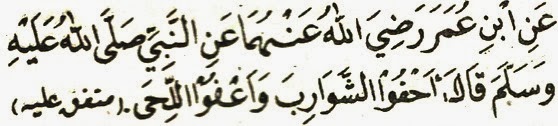 عَنِ ابْنِ عُمَرَ رَضِيَ اللهُ عَنْهُمَا عَنِ النَّبِيِّ صَلَّى اللهُ عَلَيْهِ
وَسَلَّمَ قَالَ: اَحْفُوْا الشَّوَارِبَ وَاَعْفُوْا اللِّحَى. (متفق عليه)